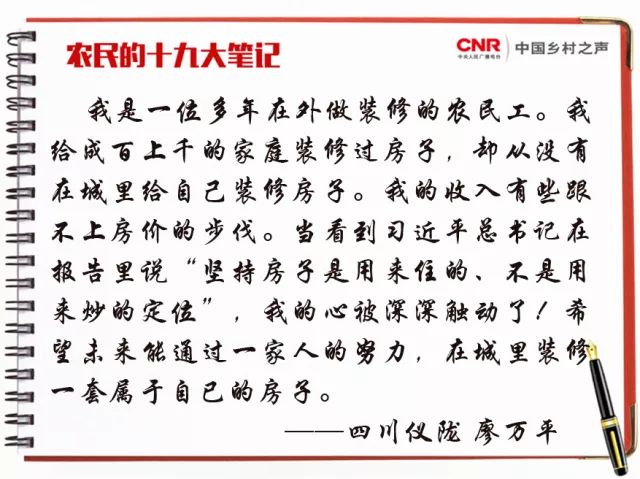 农民的十九大笔记
CNR 中国乡村之声
中央人民广播电台
我是一位多年在外做装修的农民工。我
给成百上千的家庭装修过房子，却从没有
在城里给自己装修房子。我的收入有些跟
不上房价的步伐。当看到习近平总书记在
报告里说“坚持房子是用来住的、不是用
来炒的定位”，我的心被深深触动了！希
望未来能通过一家人的努力，在城里装修
一套属于自己的房子。
——四川仪陇 廖万平